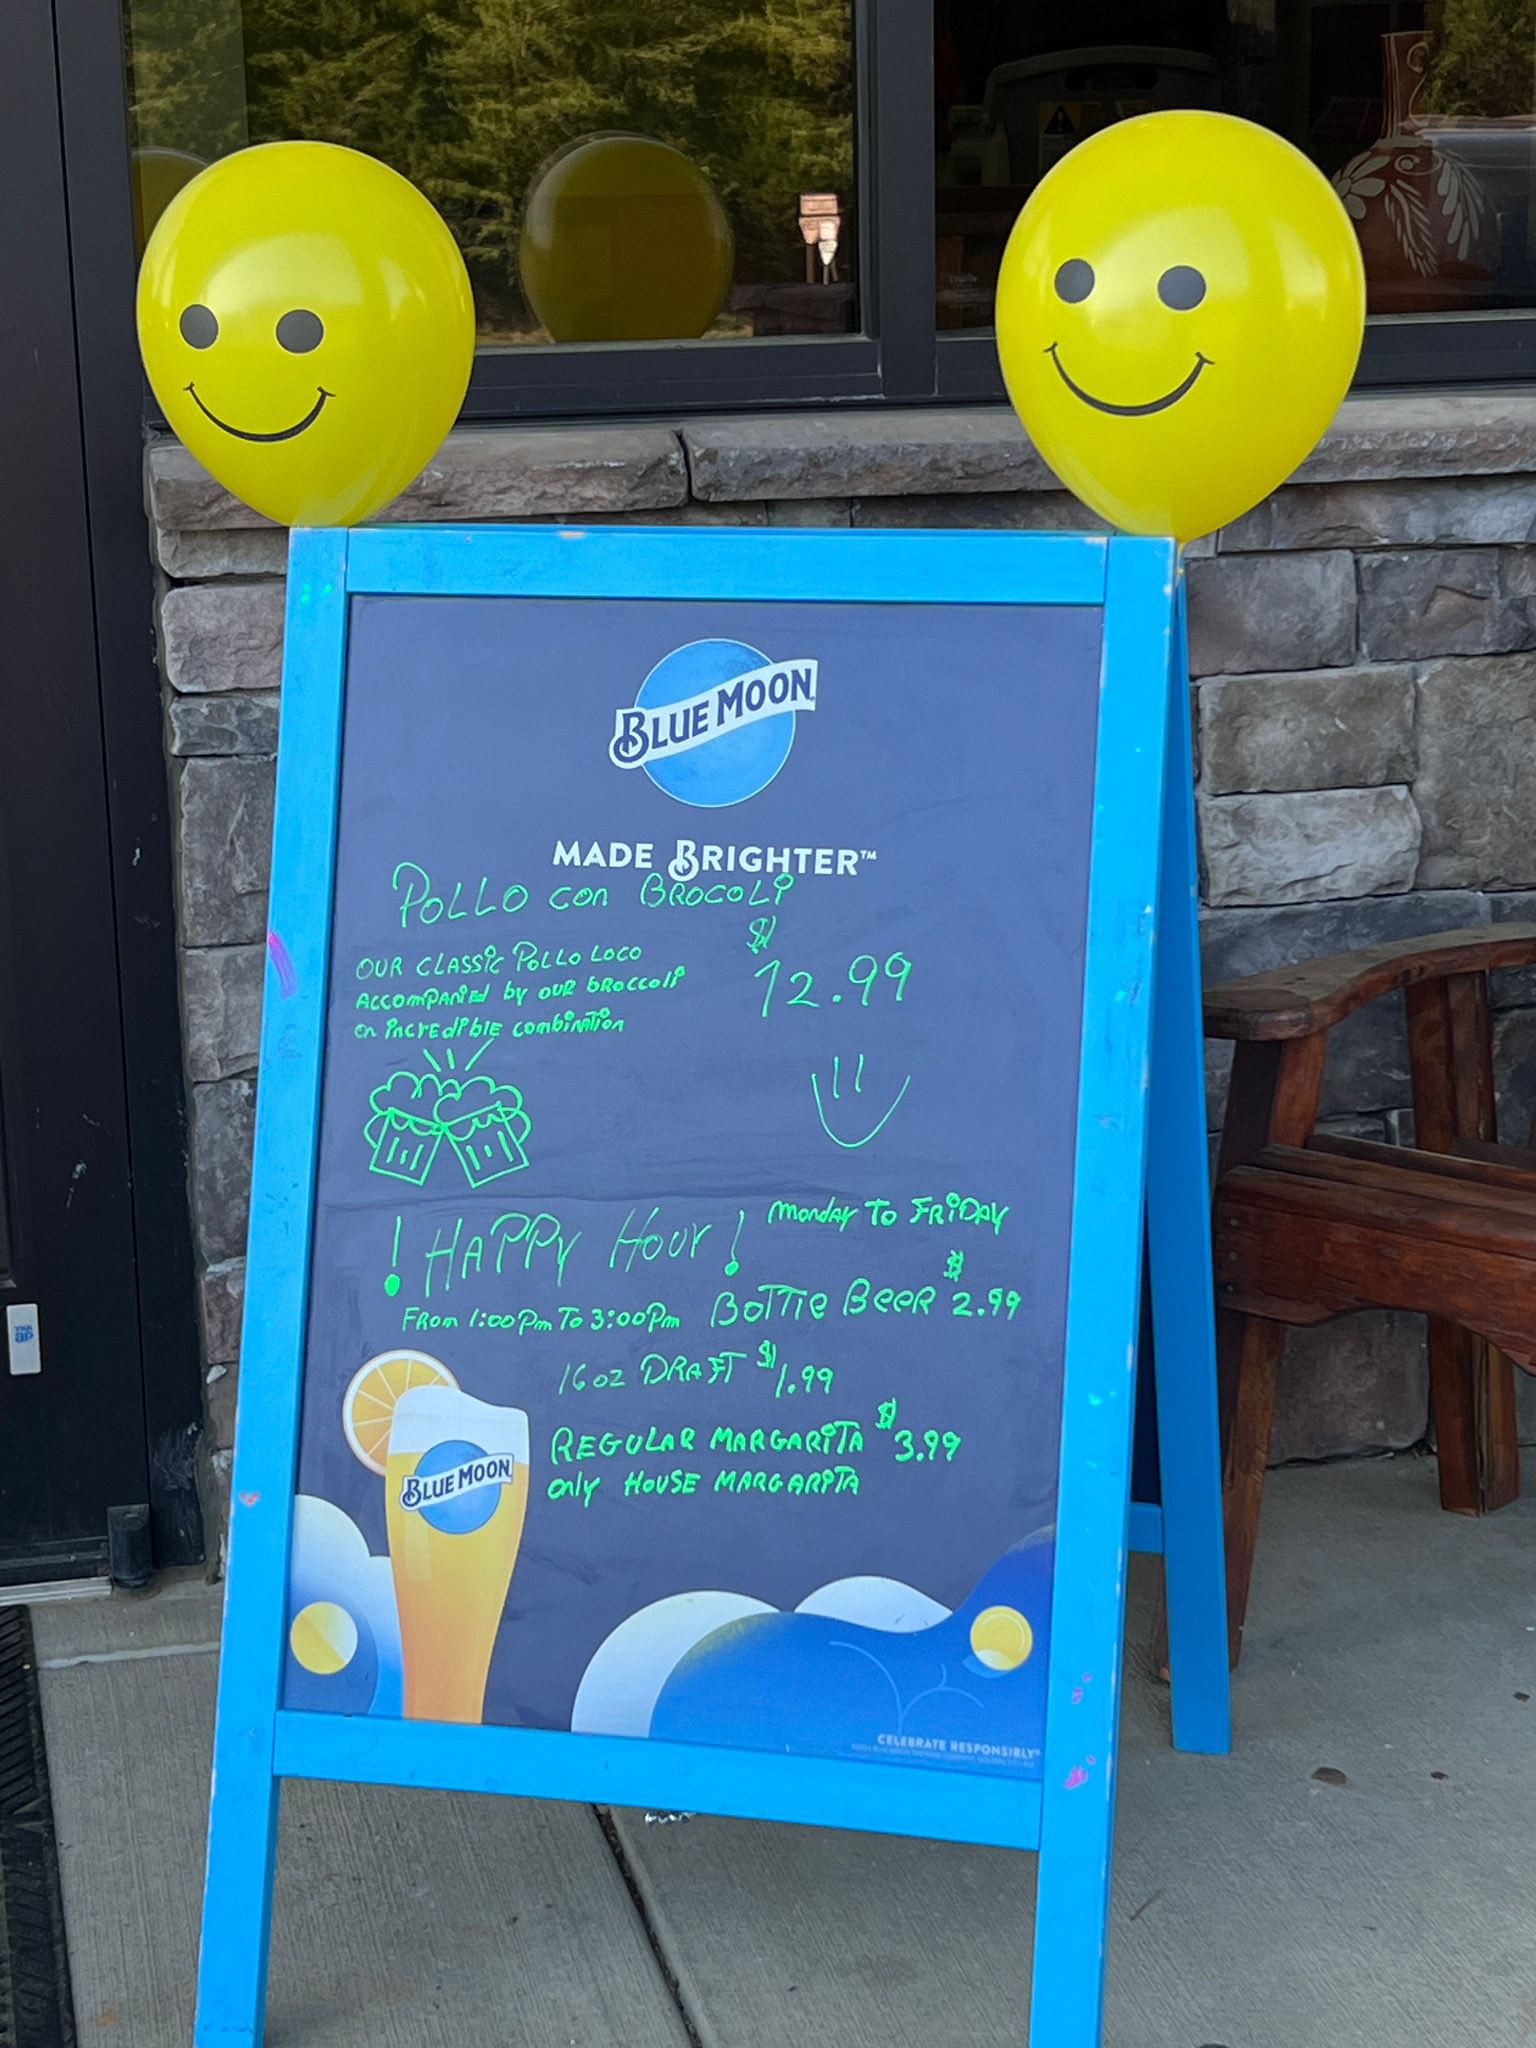 BLUE MOON
MADE BRIGHTER™
POLLO con BROCOLI
OUR CLASSIC POLLO LOCO
ACCOMPANIED by OUR BROCCOLI
an incREdiblE combinATion
$12.99
! HAPPY HOUR !
monday TO FRIDAY
From 1:00 Pm To 3:00 Pm
BOTTlE BEER $2.99
16 oz DRAFT $1.99
REGULAR MARGARITA $3.99
only HOUSE MARGARITA
BLUE MOON
CELEBRATE RESPONSIBLY®